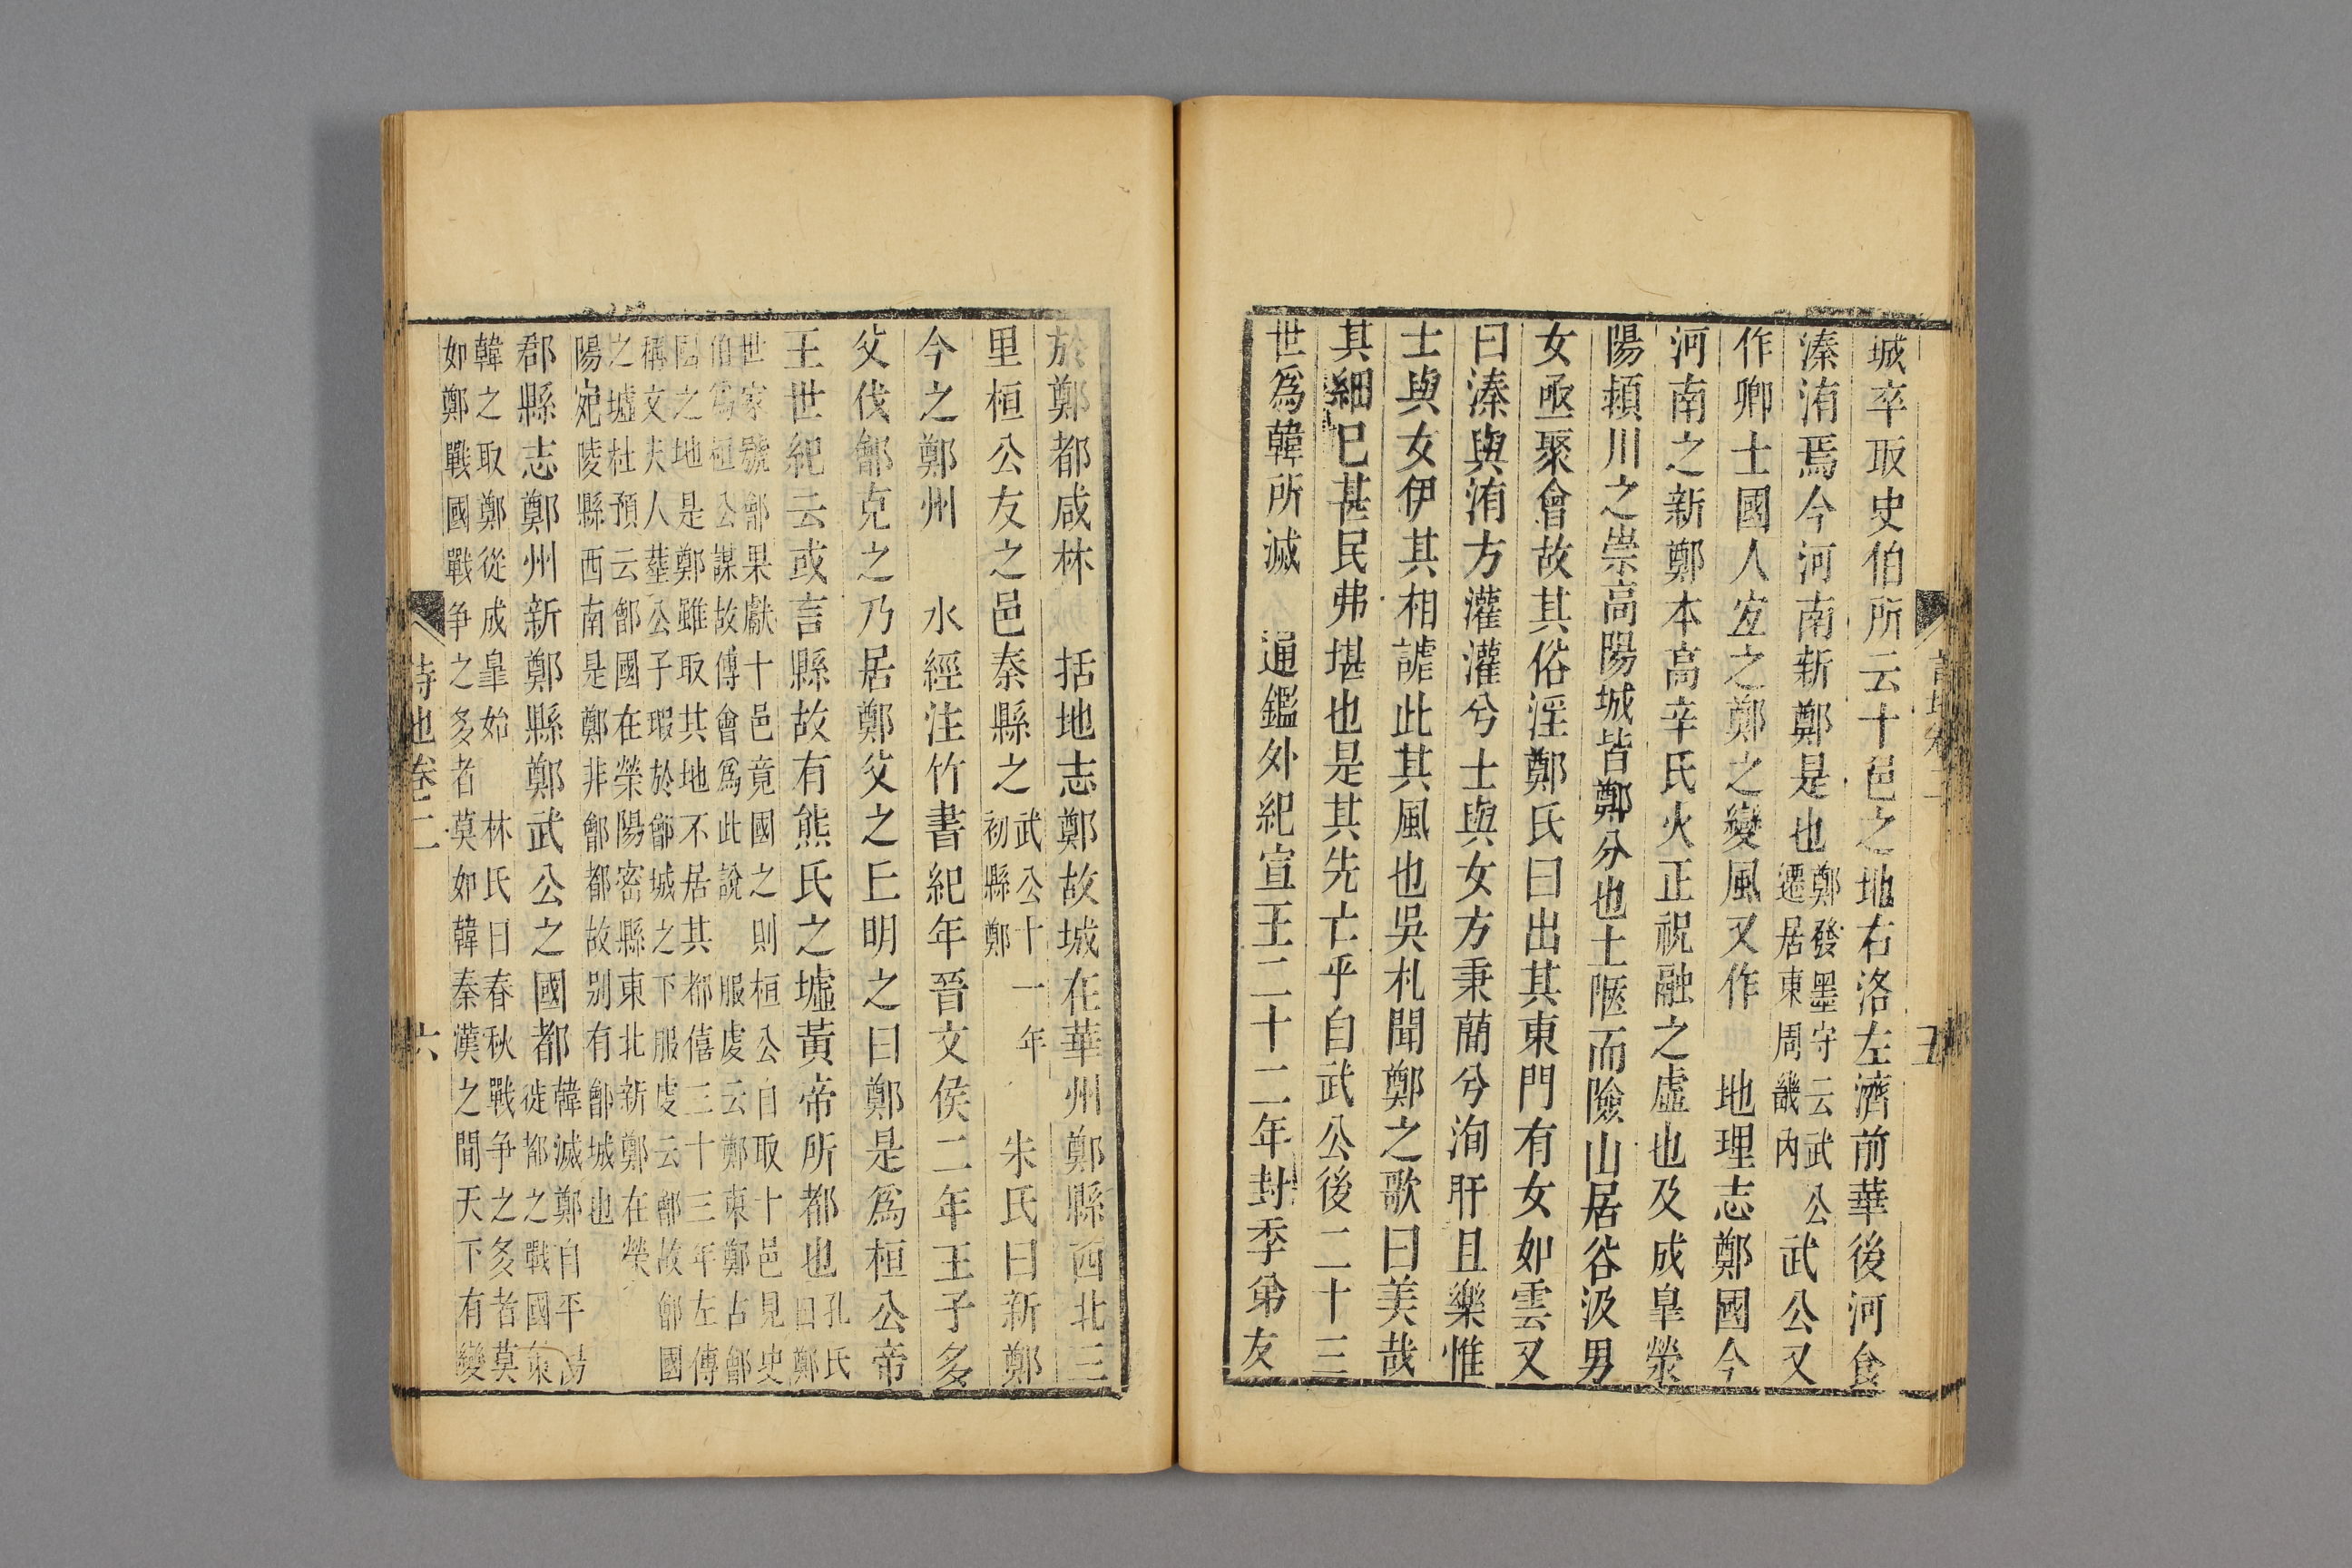 城卒取史伯所云十邑之地右洛左濟前華後河食
溱洧焉今河南新鄭是也鄭發墨守云武公遷居東周畿內武公又
作卿士國人宜之鄭之變風又作 地理志鄭國今
河南之新鄭本高辛氏火正祝融之虛也及成皐滎
陽潁川之崇高陽城皆鄭分也土陿而險山居谷汲男
女亟聚會故其俗淫鄭氏曰出其東門有女如雲又
曰溱與洧方灌灌兮士與女方秉蕑兮洵盱且樂惟
士與女伊其相謔此其風也吳札聞鄭之歌曰美哉
其細已甚民弗堪也是其先亡乎自武公後二十三
世爲韓所滅 通鑑外紀宣王二十二年封季弟友
於鄭都咸林 括地志鄭故城在華州鄭縣西北三
里桓公友之邑秦縣之武公十一年初縣鄭 朱氏曰新鄭
今之鄭州 水經注竹書紀年晉文侯二年王子多
父伐鄶克之乃居鄭父之丘明之曰鄭是爲桓公帝
王世紀云或言縣故有熊氏之墟黃帝所都也孔氏曰鄭
世家虢鄶果獻十邑竟國之則桓公自取十邑見史
伯爲桓公謀故傅會爲此說 服虔云鄭東鄭古鄶
國之地是鄭雖取其地不居其都僖三十三年左傳
稱文夫人葬公子瑕於鄶城之下服虔云鄶故鄶國
之墟杜預云鄶國在滎陽密縣東北新鄭在滎
陽宛陵縣西南是鄭非鄶都故别有鄶城也
郡縣志鄭州新鄭縣鄭武公之國都韓滅鄭自平陽徙都之戰國策
韓之取鄭從成皐始 林氏曰春秋戰争之多者莫
如鄭戰國戰争之多者莫如韓秦漢之間天下有變
詩地卷二 六